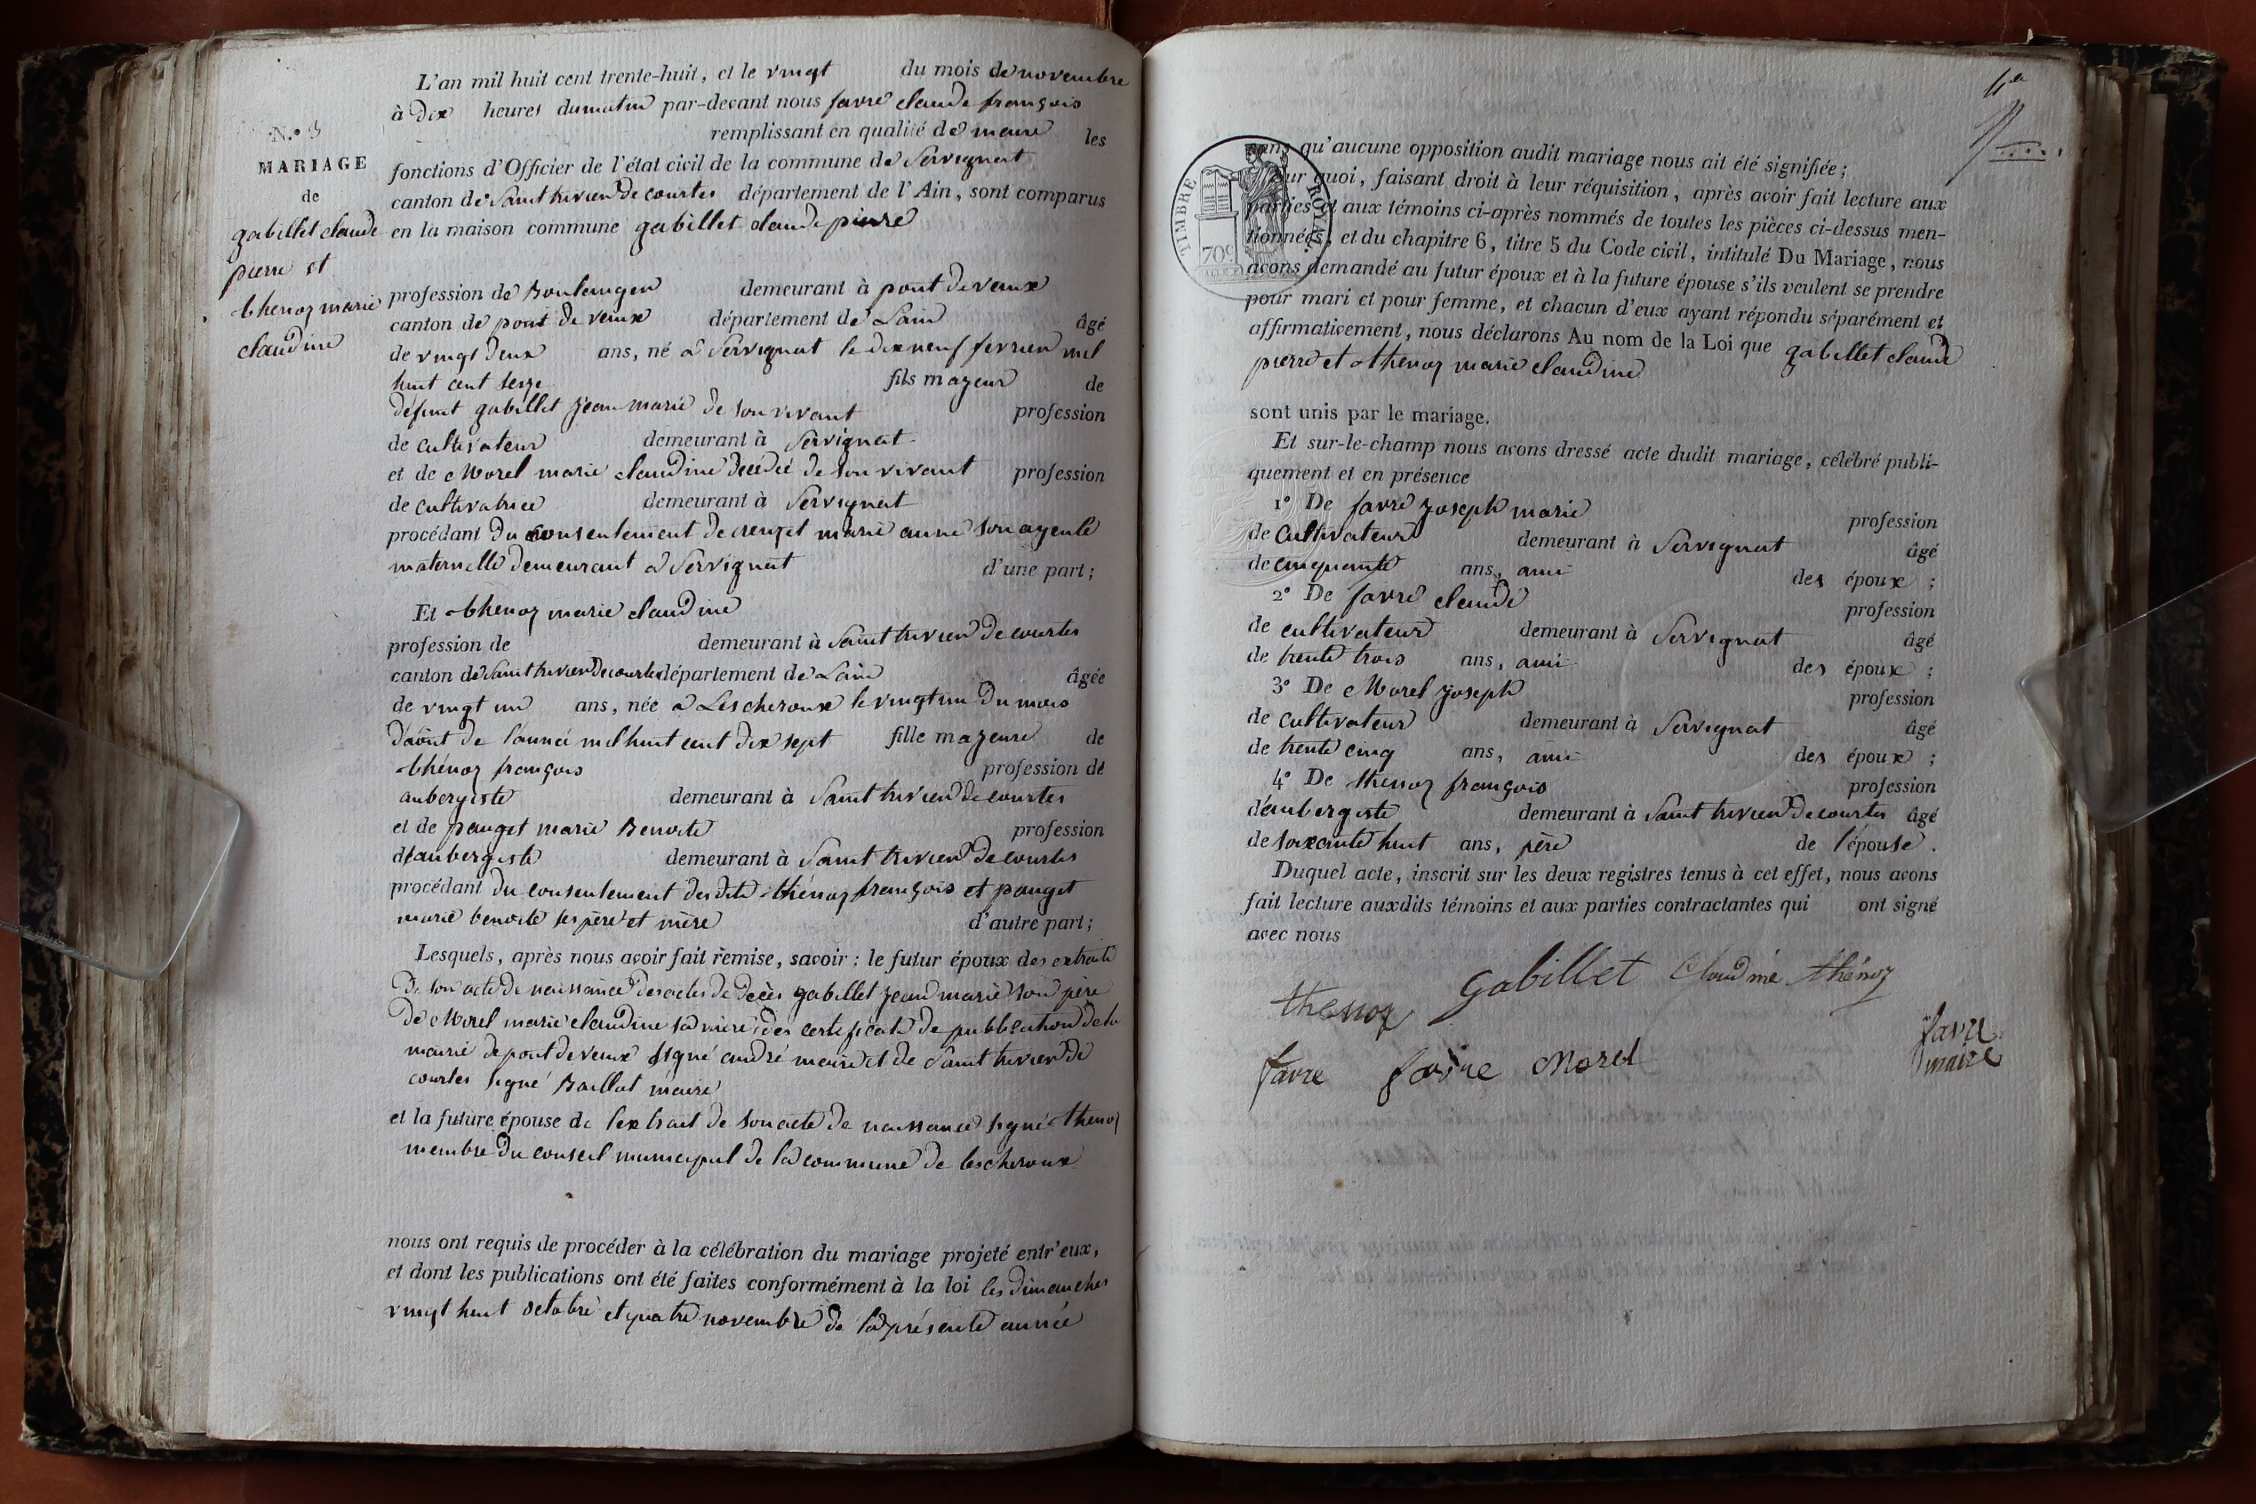 N.º 3
MARIAGE
de
gabillet claude
pierre et
thenoz marie
claudine
L'an mil huit cent trente-huit, et le vingt du mois de novembre
à dix heures du matin par-devant nous favre claude françois
remplissant en qualité de maire les
fonctions d'Officier de l'état civil de la commune de Servignat
canton de Saint trivier de courtes département de l'Ain, sont comparus
en la maison commune gabillet claude pierre
profession de Boulanger demeurant à pont de vaux
canton de pont de vaux département de Lain âgé
de vingt deux ans, né à Servignat le dix neuf fevrier mil
huit cent seize fils majeur de
défunt gabillet jean marie de son vivant profession
de cultivateur demeurant à Servignat
et de Morel marie claudine décédée de son vivant profession
de cultivatrice demeurant à Servignat
procédant du consentement de marie anne son ayeule
maternelle demeurant à Servignat d'une part;
Et thenoz marie claudine
profession de demeurant à Saint trivier de courtes
canton de Saint trivier de courtes département de Lain âgée
de vingt un ans, née à Lescheroux le vingt un du mois
d'août de l'année mil huit cent dix sept fille majeure de
thénoz françois profession de
aubergiste demeurant à Saint trivier de courtes
et de pauget marie Benoite profession
d'aubergiste demeurant à Saint trivier de courtes
procédant du consentement desdits thénoz françois et pauget
marie benoite ses père et mère d'autre part;
Lesquels, après nous avoir fait remise, savoir : le futur époux des extraits
de son acte de naissance des actes de décès gabillet jean marie son père
de Morel marie claudine sa mère des certificats de publication de la
mairie de pont de vaux signé andré maire et de Saint trivier de
courtes signé Baillat maire
et la future épouse de l'extrait de son acte de naissance signé thenoz
membre du conseil municipal de la commune de lescheroux
nous ont requis de procéder à la célébration du mariage projeté entr'eux,
et dont les publications ont été faites conformément à la loi les dimanches
vingt huit octobre et quatre novembre de la présente année
TIMBRE ROYAL
70c
sans qu'aucune opposition audit mariage nous ait été signifiée;
sur quoi, faisant droit à leur réquisition, après avoir fait lecture aux
parties et aux témoins ci-après nommés de toutes les pièces ci-dessus men-
tionnées, et du chapitre 6, titre 5 du Code civil, intitulé Du Mariage, nous
avons demandé au futur époux et à la future épouse s'ils veulent se prendre
pour mari et pour femme, et chacun d'eux ayant répondu séparément et
affirmativement, nous déclarons Au nom de la Loi que gabillet claude
pierre et thenoz marie claudine
sont unis par le mariage.
Et sur-le-champ nous avons dressé acte dudit mariage, célébré publi-
quement et en présence
1º De favre joseph marie profession
de Cultivateur demeurant à Servignat âgé
de cinquante ans, ami des époux ;
2º De favre claude profession
de cultivateur demeurant à Servignat âgé
de trente trois ans, ami des époux ;
3º De Morel joseph profession
de cultivateur demeurant à Servignat âgé
de trente cinq ans, ami des époux ;
4º De thenoz françois profession
d'aubergiste demeurant à Saint trivier de courtes âgé
de soixante huit ans, père de l'épouse.
Duquel acte, inscrit sur les deux registres tenus à cet effet, nous avons
fait lecture auxdits témoins et aux parties contractantes qui ont signé
avec nous
thenoz Gabillet Claudine thénoz
favre favre Morel favre
maire